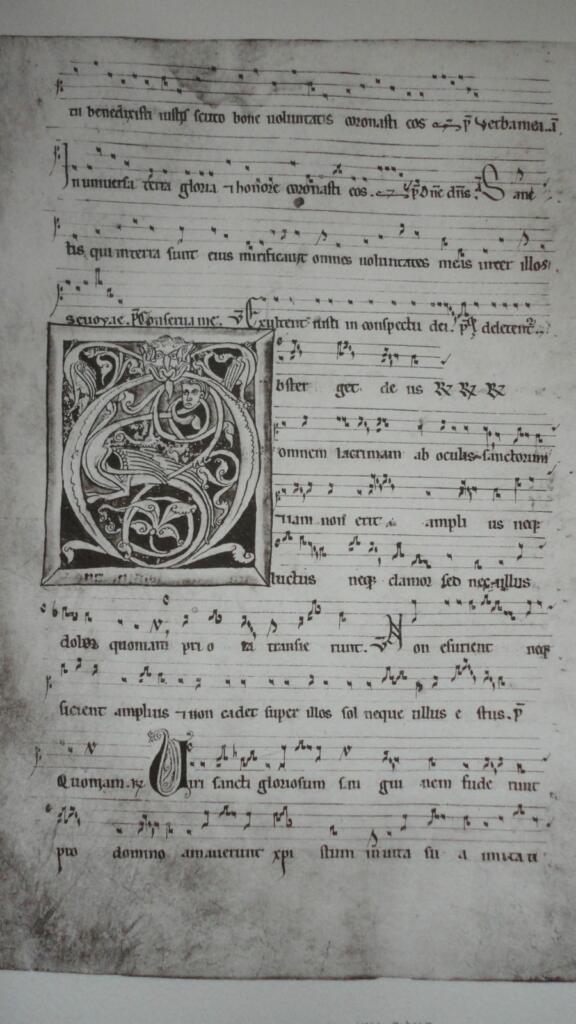 tu benedixisti iustis scuto bone uoluntatis coronasti eos p̄ Verba mea. ī
In uniuersa terra gloria ⁊ honore coronasti eos. p̄ Dn̄e dn̄s. Sanc
tis qui in terra sunt eius mirificauit omnes uoluntates meas inter illos
p̄ Conserua me. V̄ Exultent iusti in conspectu dei. p̄
bster get de us R̄ R̄ R̄
omnem lacrimam ab oculis sanctorum
⁊ iam non erit ampli us neq;
luctus neq; clamor sed nec ullus
dolor quoniam pri o ra transie runt. V̄ Non esurient neq;
sicient amplius ⁊ non cadet super illos sol neque ullus e stus. p̄
Quoniam. R̄ Uiri sancti gloriosum san gui nem fude runt
pro domino amauerunt xpi stum in uita su a imitati